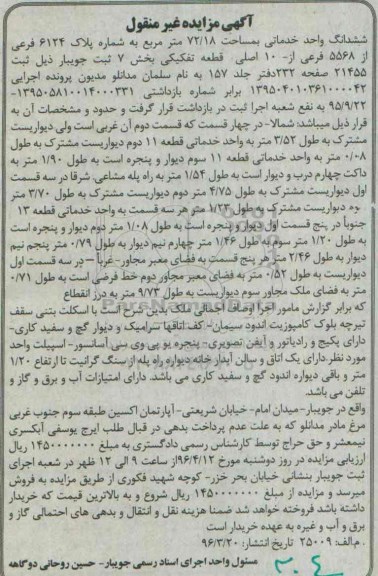 آگهی مزایده غیر منقول
ششدانگ واحد خدماتی بمساحت ۷۲/۱۸ متر مربع به شماره پلاک ۶۱۲۴ فرعی
از ۵۵۶۸ فرعی از- ۱۰ اصلی قطعه تفکیکی بخش ۷ ثبت جویبار ذیل ثبت
۲۱۴۵۵ صفحه ۲۳۲دفتر جلد ۱۵۷ به نام سلمان مدانلو مدیون پرونده اجرایی
۱۳۹۵۰۴۰۱۰۳۶۱۰۰۰۰۴۲ برابر شماره بازداشتی ۱۳۹۵۰۵۸۱۰۰۱۴۰۰۰۳۳۱-
۹۵/۹/۲۲ به نفع شعبه اجرا ثبت در بازداشت قرار گرفت و حدود و مشخصات آن به
قرار ذیل میباشد: شمالا- در چهار قسمت که قسمت دوم آن غربی است ولی دیواریست
مشترک به طول ۳/۵۲ متر به واحد خدماتی قطعه ۱۱ دوم دیواریست مشترک به طول
۰/۰۸ متر به واحد خدماتی قطعه ۱۱ سوم دیوار و پنجره است به طول ۱/۹۰ متر به
داکت چهارم درب و دیوار است به طول ۱/۵۴ متر به راه پله مشاعی. شرقا در سه قسمت
اول دیواریست مشترک به طول ۴/۷۵ متر دوم دیواریست مشترک به طول ۳/۷۰ متر
سوم دیواریست مشترک به طول ۱/۲۳ متر هر سه قسمت به واحد خدماتی قطعه ۱۳
جنوباً در پنج قسمت اول دیوار و پنجره است به طول ۱/۰۸ متر دوم دیوار و پنجره است
به طول ۱/۲۰ متر سوم به طول ۱/۴۶ متر چهارم نیم دیوار به طول ۰/۷۹ متر پنجم نیم
دیوار به طول ۲/۴۶ متر هر پنج قسمت به فضای معبر مجاور- غرباً – در سه قسمت اول
دیواریست به طول ۰/۵۲ متر به فضای معبر مجاور دوم خط فرضی است به طول ۰/۷۱
متر به فضای ملک مجاور سوم دیواریست به طول ۹/۷۳ متر به درز انقطاع
که برابر گزارش مامور اجرا اوصاف اجمالی ملک بدین شرح است با اسکلت بتنی سقف
تیرچه بلوک کامپوزیت اندود سیمان- کف اتاقها سرامیک و دیوار گچ و سفید کاری-
دارای پکیج و رادیاتور و آیفن تصویری- پنجره یو پی وی سی آسانسور- اسپیلت واحد
مورد نظر دارای یک اتاق و سالن آبدار خانه دیواره راه پله از سنگ گرانیت تا ارتفاع ۱/۲۰
متر و باقی دیواره اندود گچ و سفید کاری می باشد. دارای امتیازات آب و برق و گاز و
تلفن می باشد.
واقع در جویبار-میدان امام- خیابان شریعتی- آپارتمان اکسین طبقه سوم جنوب غربی
مرغ مادر مدانلو که به علت عدم پرداخت بدهی در قبال طلب ایرج یوسفی آبکسری
نیمعشر و حق حراج توسط کارشناس رسمی دادگستری به مبلغ ۱۴۵۰۰۰۰۰۰۰ ریال
ارزیابی مزایده در روز دوشنبه مورخ ۹۶/۴/۱۲از ساعت ۹ الی ۱۲ ظهر در شعبه اجرای
ثبت جویبار بنشانی خیابان بحر خزر- کوچه شهید فکوری از طریق مزایده به فروش
میرسد و مزایده از مبلغ ۱۴۵۰۰۰۰۰۰۰ ریال شروع و به بالاترین قیمت که خریدار
داشته باشد فروخته خواهد شد ضمنا هزینه نقل و انتقال و بدهی های احتمالی گاز و
برق و آب و غیره به عهده خریدار است
. م.الف: ۲۵۰۰۹ تاریخ انتشار: ۹۶/۳/۲۰
مسئول واحد اجرای اسناد رسمی جویبار- حسین روحانی دوگاهه
۲۰۴